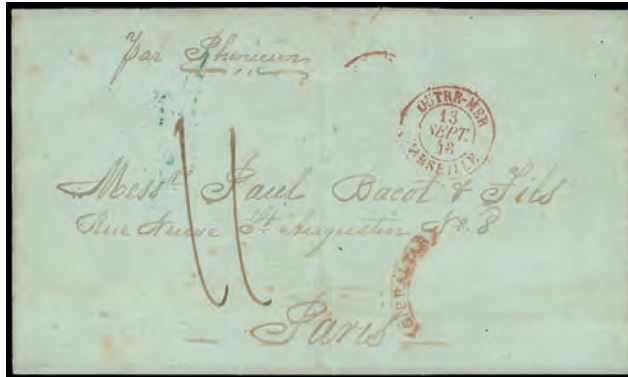 par Phénicien
OUTRE-MER
13
SEPT.
48
MARSEILLE
11
Mess.rs Paul Bacot & Fils
Rue Neuve St. Augustin No. 8
GIBRALTAR
Paris